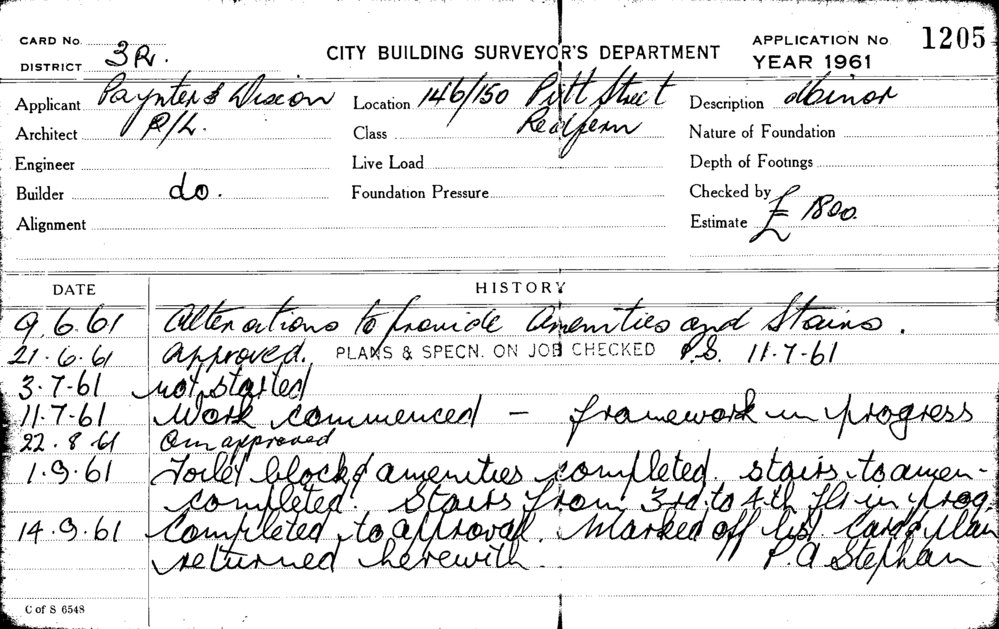 CARD No.
DISTRICT 3R.
CITY BUILDING SURVEYOR'S DEPARTMENT
APPLICATION No. 1205
YEAR 1961
Applicant Paynter & Dixon
Location 146/150 Pitt Street
Description Minor
Architect P/L.
Class Redfern
Nature of Foundation
Engineer
Live Load
Depth of Footings
Builder do.
Foundation Pressure
Checked by
Alignment
Estimate £ 1800.
DATE HISTORY
9.6.61 Alterations to provide Amenities and Stairs.
21.6.61 Approved. PLANS & SPECN. ON JOB CHECKED P.S. 11-7-61
3.7.61 not started
11.7.61 Work commenced – framework in progress
22.8.61 approved
1.9.61 Toilet block & amenities completed. stairs to amen-
completed. Stairs from 3rd to 4th flr in prog.
14.9.61 Completed to approval. Marked off list. Card & plan
returned herewith. P.A Stephan
C of S 6548